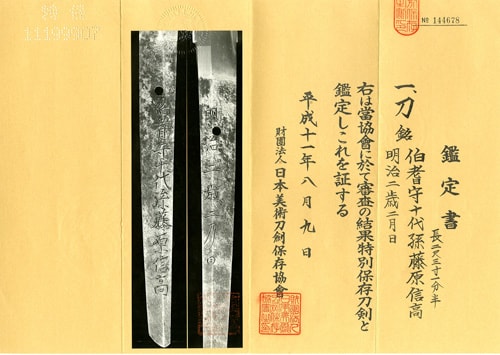 № 144678
鑑定書
長二尺三寸一分半
一、刀 銘 伯耆守十代孫藤原信高
明治二歳二月日
右は當協會に於て審査の結果特別保存刀剣と
鑑定しこれを証する
平成十一年八月九日
財團法人 日本美術刀剣保存協會